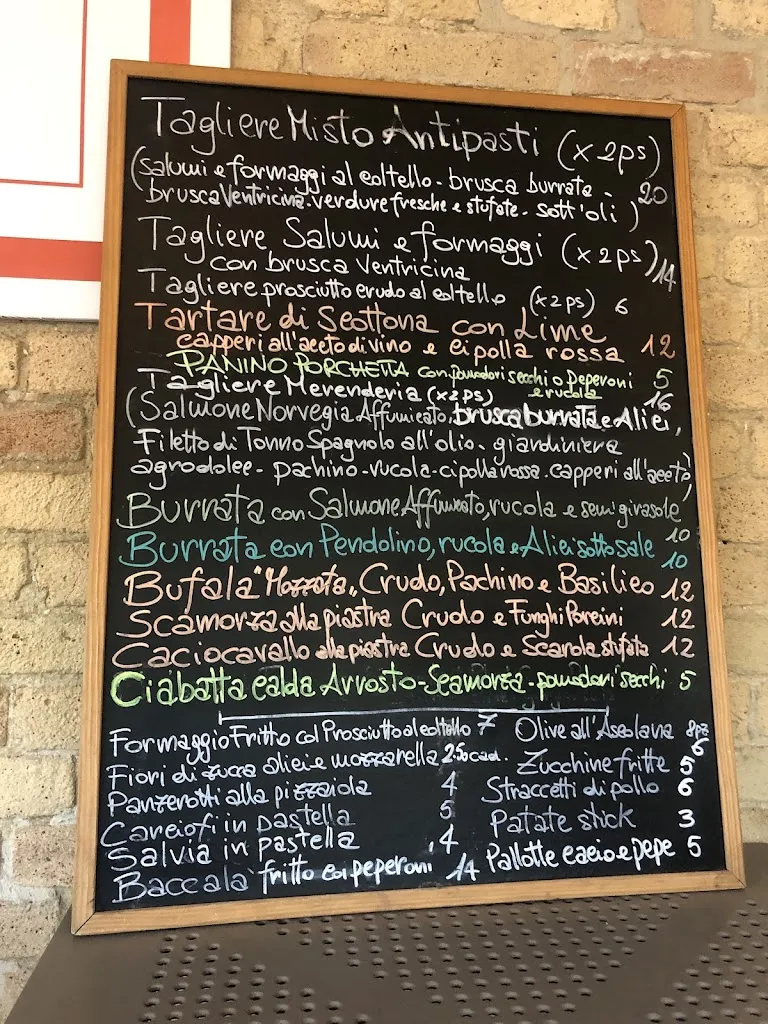 Tagliere Misto Antipasti (x 2ps)
(salumi e formaggi al coltello - brusca burrata - 20
brusca Ventricina - verdure fresche e stufate - sott'oli)
Tagliere Salumi e formaggi (x 2ps) 14
con brusca Ventricina
Tagliere prosciutto crudo al coltello (x2ps) 6
Tartare di Scottona con Lime
capperi all'aceto di vino e cipolla rossa 12
PANINO PORCHETTA con pomodori secchi o peperoni 5
e rucola
Tagliere Merenderia (x2ps) 16
(Salmone Norvegia Affumicato, brusca burrata e Alici,
Filetto di Tonno Spagnolo all'olio - giardiniera
agrodolce - pachino - rucola - cipolla rossa - capperi all'aceto)
Burrata con Salmone Affumicato, rucola e semi girasole
10
Burrata con Pendolino, rucola e Alici sotto sale
10
Bufala "Mozzata" Crudo, Pachino e Basilico 12
Scamorza alla piastra Crudo e Funghi Porcini 12
Caciocavallo alla piastra Crudo e Scarola stufata 12
Ciabatta calda Arrosto - Scamorza - pomodori secchi 5
Formaggio Fritto col Prosciutto al coltello 7
Fiori di zucca alici e mozzarella 2.50 cad.
Panzerotti alla pizzaiola 4
Carciofi in pastella 5
Salvia in pastella 4
Baccalà fritto coi peperoni 14
Olive all'Ascolana 8pz
6
Zucchine fritte 5
Straccetti di pollo 6
Patate stick 3
Pallotte cacio e pepe 5